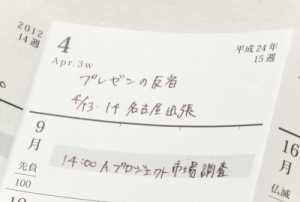 2012
14週
4
Apr.3w
平成24年
15週
プレゼンの反省
4/13・14 名古屋出張
9
月
先負
100
14:00 Aプロジェクト市場調査
16
月
仏滅
10